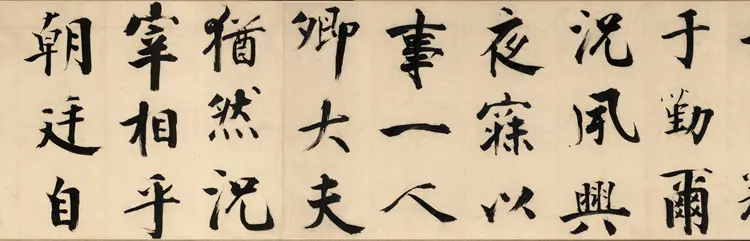 于勤爾
況夙興
夜寐以
事一人
卿大夫
猶然況
宰相乎
朝廷自